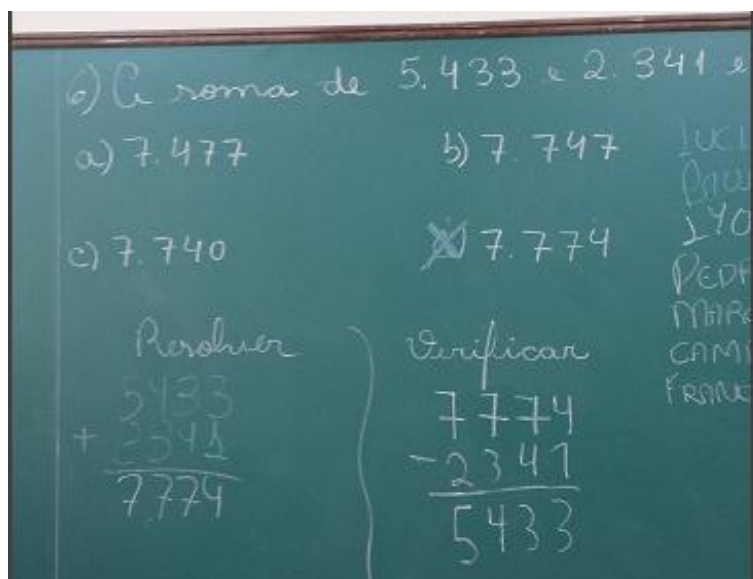 6) A soma de 5.433 e 2.341 e
a) 7.477
b) 7.747
c) 7.740
7.774
Resolver
5433
+ 2341
7774
Verificar
7774
- 2341
5433
LUCI
PEDR
MARC
CAMI
FRANC